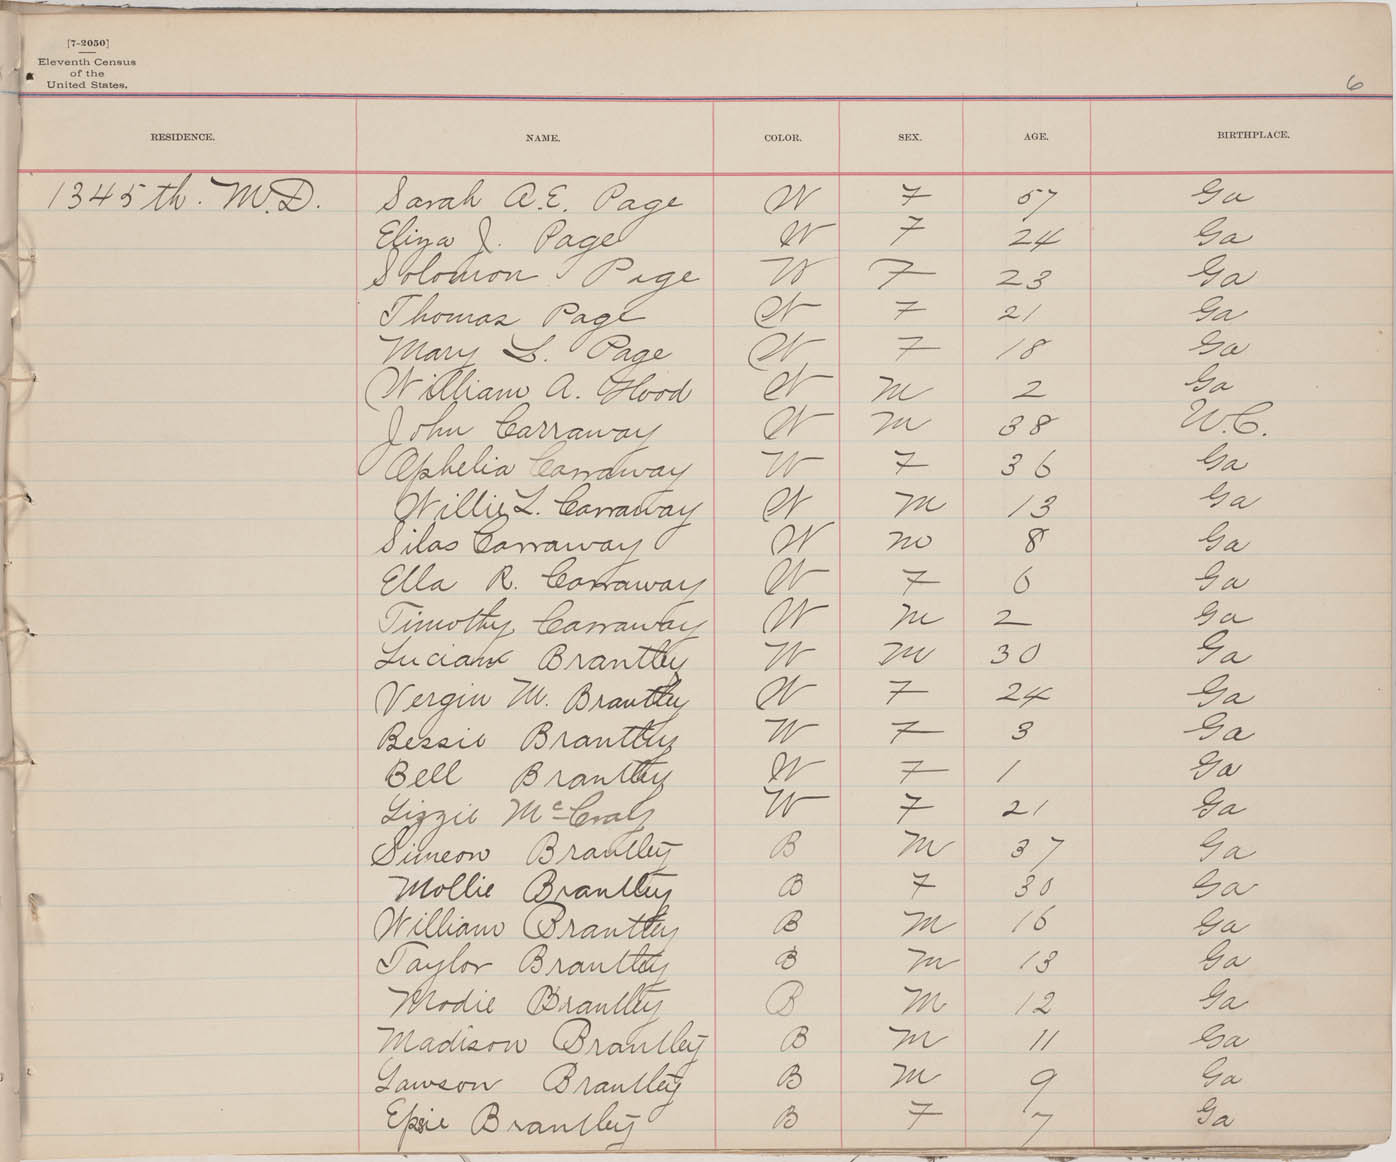 [7-2050]
Eleventh Census
of the
United States.
6
RESIDENCE. NAME. COLOR. SEX. AGE. BIRTHPLACE.
1345th. M.D. Sarah A.E. Page W F 57 Ga
Eliza J. Page W F 24 Ga
Solomon Page W F 23 Ga
Thomas Page W F 21 Ga
Mary L. Page W F 18 Ga
William A. Hood W M 2 Ga
John Carraway W M 38 N.C.
Ophelia Carraway W F 36 Ga
Willie L. Carraway W M 13 Ga
Silas Carraway W M 8 Ga
Ella R. Carraway W F 6 Ga
Timothy Carraway W M 2 Ga
Lucian Brantley W M 30 Ga
Vergin M. Brantley W F 24 Ga
Bessie Brantley W F 3 Ga
Bell Brantley W F 1 Ga
Lizzie W F 21 Ga
Simeon Brantley B M 37 Ga
Mollie Brantley B F 30 Ga
William Brantley B M 16 Ga
Taylor Brantley B M 13 Ga
Modie Brantley B M 12 Ga
Madison Brantley B M 11 Ga
Lawson Brantley B M 9 Ga
Epsie Brantley B F 7 Ga